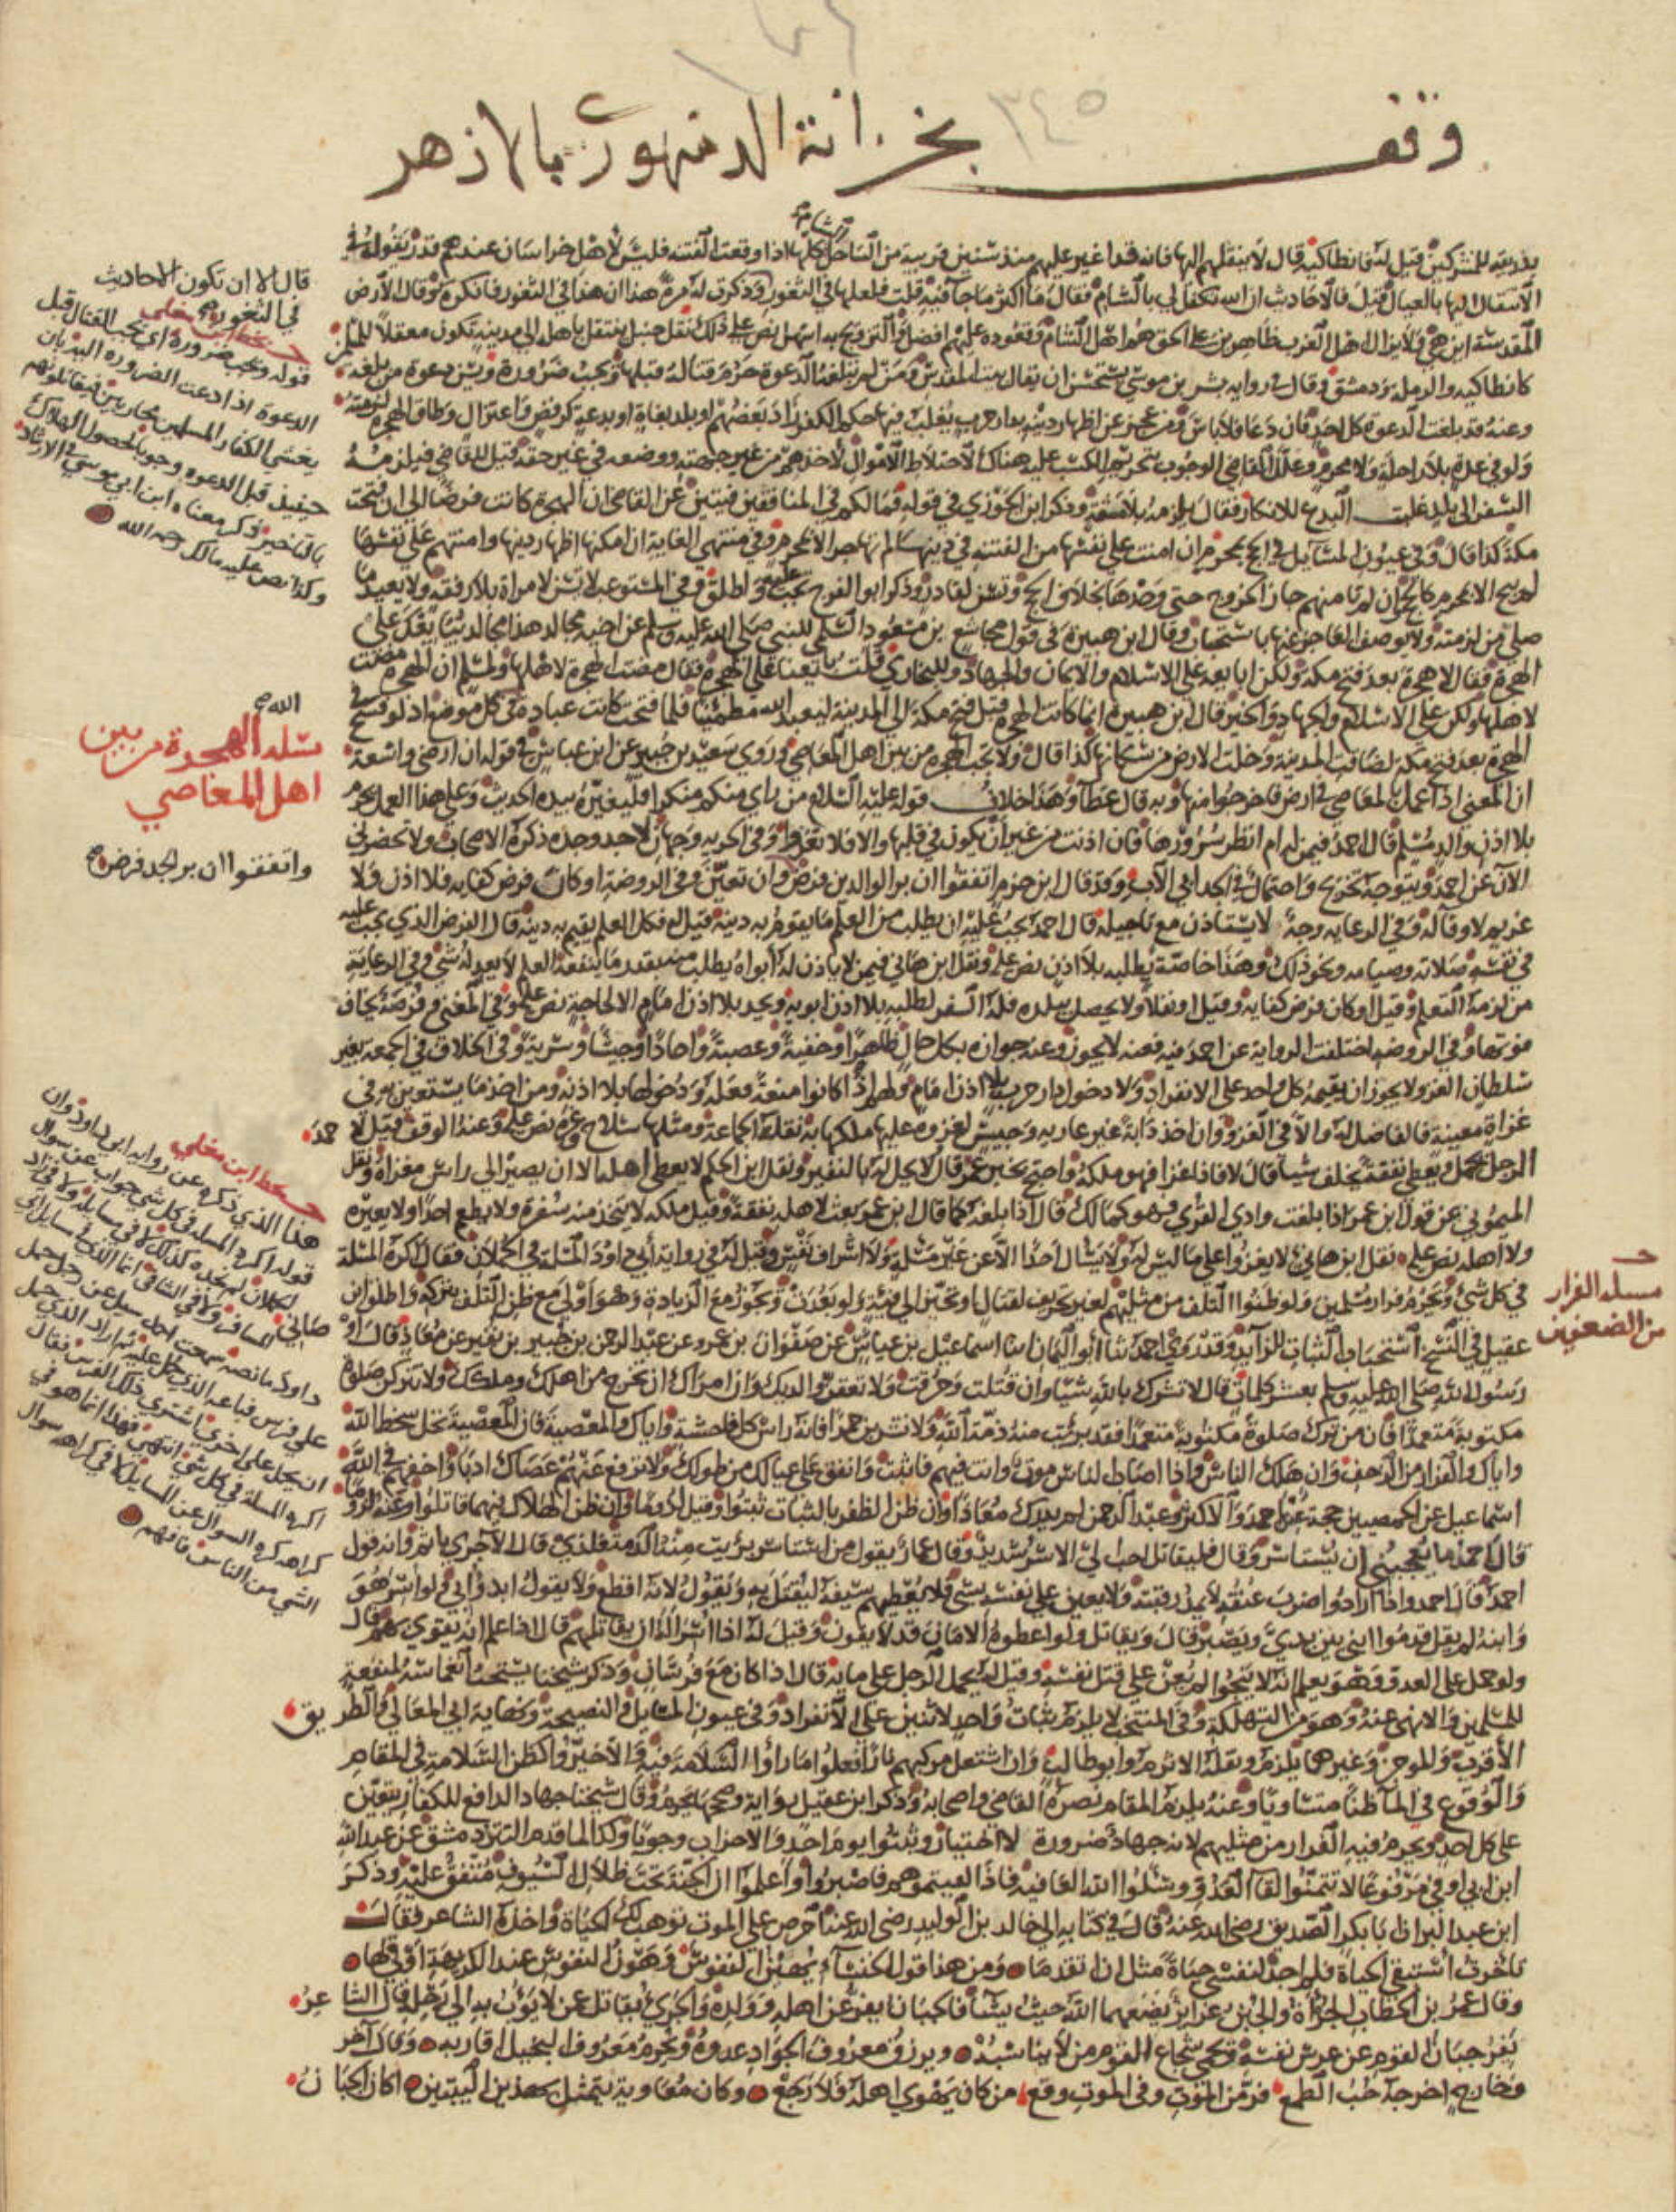 وقف بخزانة الدمنهوري بالازهر
٣٤٥
بذريته للمشركين قيل له فانطاكية قال لا ينقلهم اليها فانه قد اغير عليهم منذ سنتين قريبة من الساحل الشام كلها اذا وقعت الفتنة فليس لاهل خراسان عندهم قدر يقوله في
الانتقال اليها بالعيال قيل فالاحاديث ان الله تكفل لي بالشام فقال ما اكثر ما جا فيه قلت فلعلها في الثغور وذكرت له مرة هذا ان هذا في الثغور فانكره وقال الارض
المقدسة اين هي ولا يزال اهل الغرب ظاهرين على الحق هم اهل الشام وقعوده عليهم افضل والتزويج بها استهل نص على ذلك نقل حنبل ينتقل باهله الى مدينة تكون معقلا للمسلمين
كانطاكية والرملة ودمشق وقال في رواية بشر بن موسى يستحسن ان يقال بيت المقدس ومن لم تبلغه الدعوة حرم قتاله قبلها ويجب ضرورة ويسن دعوة من بلغته
وعنه قد بلغت الدعوة كل احد فان دعا فلا باس ومن عجز عن اظهار دينه بدار حرب يغلب فيها حكم الكفر زاد بعضهم او بلد بغاة او بدعة كرفض واعتزال وطاق الهجرة لزمته
ولو في عدة بلا راحلة ولا محرم وعلل القاضي الوجوب بتحريم الكسب عليه هناك لاختلاط الاموال لاخذهم من غير جهته ووضعه في غير حقه قيل للقاضي فيلزمه
السفر الى بلد غلبت البدع للانكار فقال يلزمه بلا مشقة وذكر ابن الجوزي في قوله فما لكم في المنافقين فئتين عن القاضي ان الهجرة كانت فرضا الى ان فتحت
مكة كذا قال وفي عيون المسايل في الحج بمحرم ان امنت على نفسها من الفتنة في دينها لم تهاجر الا بمحرم وفي منتهى الغاية ان امكنها اظهار دينها وامنتهم على نفسها
لم يبح الا بمحرم كالحج وان لم تامنهم جاز الخروج حتى وحدها بخلاف الحج وتسن لقادر وذكر ابو الفرج تجب عليه واطلق وفي المستوعب لا تسن لامراة بلا رفقة ولا يعيد ما
صلى من لزمته ولا يوصف العاجز عنها باستحباب وقال ابن هبيرة في قول مجاشع بن مسعود السلمي للنبي صلى الله عليه وسلم عن اخيه مجالد هذا مجالد يبايعك على
الهجرة فقال لا هجرة بعد فتح مكة ولكن ابايعه على الاسلام والايمان والجهاد وللبخاري قلت بايعنا على الهجرة فقال مضت الهجرة لاهلها ولمسلم ان الهجرة مضت
لاهلها ولكن على الاسلام والجهاد والخير قال ابن هبيرة انما كانت الهجرة قبل فتح مكة الى المدينة ليعبد الله مطمئنا فلما فتحت كانت عبادة في كل موضع اذ لو فسح في
الهجرة بعد فتح مكة لضاقت المدينة وخلت الارض من سكانها كذا قال ولا تجب الهجرة من بين اهل المعاصي وروي سعيد بن جبير عن ابن عباس في قوله ان ارضي واسعة
ان المعنى اذا عمل بالمعاصي في ارض فاخرجوا منها وبه قال عطا وهذا خلاف قوله عليه السلام من راى منكم منكرا فليغيره بيده الحديث وعلى هذا العمل
بلا اذن والد مسلم قال احمد فيمن له ام انظر سرورها فان اذنت من غير ان يكون في قلبها والا فلا تغزو وفي الحربة وجهان لا جد وجدة ذكره الاصحاب ولا تحضرني
الآن عن احمد ويتوجه تخريج واحتمال في الجد ابي الاب وقد قال ابن حزم اتفقوا ان بر الوالدين فرض وان تعين وفي الروضة او كان فرض كفاية فلا اذن ولا
غريم لا وفا له وفي الرعاية وجه لا يستاذن مع تاجيله قال احمد يجب عليه ان يطلب من العلم ما يقوم به دينه قيل له فكل العلم يقيم به دينه قال الفرض الذي يجب عليه
في نفسه صلاته وصيامه ونحو ذلك وهذا خاصة يطلبه بلا اذن نص عليه ونقل ابن هاني فيمن لا ياذن له ابواه يطلب منه بقدر ما ينفعه العلم لا يعدله شي وفي الرعاية
من لزمه التعلم وقيل او كان فرض كفاية وقيل او نفلا ولا يحصل ببلده فله السفر لطلبه بلا اذن ابويه ويحرم بلا اذن امام الا لحاجة نص عليه وفي المغني وفرصة يخاف
فوتها وفي الروضة اختلفت الرواية عن احمد فيه فعنه لا يجوز وعنه جوازه بكل حال ظاهرا وخفية وعصبة واحادا وجيشا وسرية وفي الخلاف في الجمعة بغير
سلطان الغزو لا يجوز ان يقيمه كل واحد على الانفراد ولا دخول دار حرب بلا اذن امام ولهم اذا كانوا منعة فعله ودخولها بلا اذنه ومن اخذ ما يستعين به في
غزاة معينة فالفاضل له والا في الغزو وان اخذ دابة غير عارية وحبيس لغزوه عليها ملكها به نقله الجماعة ومثلها سلاح وغيره نص عليه وعنه الوقف قيل لاحمد
الرجل يحمل ويعطى نفقة يخلف شيا قال لا فاذا غزا فهو ملكه واحتج بخبر عمر قال لا يحل له بالنفير ونقل ابن الحكم لا يعطي اهله الا ان يصير الى راس مغزاه ونقل
الميموني عن قول ابن عمر اذا بلغت وادي القرى فهو كمالك قال اذا بلغه كما قال ابن عمر بعث لاهله نفقة وقيل ملكه لا يتخذ منه سفرة ولا يطعم احدا ولا يعيره
ولا اهله نص عليه نقل ابن هاني لا يغزوا على ما ليس له ولا يسال احدا الا عن غير مسئلة ولا اشراف نفس وقيل له في رواية ابي داود المسئلة في الحملان فقال اكره المسلة
في كل شي ويحرم فرار مسلمين ولو ظنوا التلف من مثليهم لغير تحريف لقتال او تحيز الى فئة ولو بعدت ويجوز مع الزيادة وهو اولى مع ظن التلف بتركه واطلق ابن
عقيل في النسخ استحباب الثبات للزايد وقد روى احمد ثنا ابو اليمان انا اسماعيل بن عياش عن صفوان بن عمرو عن عبد الرحمن بن جبير بن نفير عن معاذ قال اوصاني
رسول الله صلى الله عليه وسلم بعشر كلمات قال لا تشرك بالله شيا وان قتلت وحرقت ولا تعقن والديك وان امراك ان تخرج من اهلك وملكك ولا تتركن صلوة
مكتوبة متعمدا فان من ترك صلوة مكتوبة متعمدا فقد برئت منه ذمة الله ولا تشربن خمرا فانه راس كل فاحشة واياك والمعصية فان المعصية تحل سخط الله
واياك والفرار من الزحف وان هلك الناس واذا اصاب الناس موت وانت فيهم فاثبت وانفق على عيالك من طولك ولا ترفع عنهم عصاك ادبا واخفهم في الله
اسماعيل عن الحمصيين حجة عند احمد والاكثر وعبد الرحمن لم يدرك معاذا وان ظن الظفر بالثبات ثبتوا وقيل لزوما وان ظن الهلاك فيهما قاتلوا وعنه لزوما
قال احمد ما يعجبني ان يستاسر وقال فليقاتل احب الي الاسر شديد وقال عمار يقول من استاسر برئت منه الذمة فلذي قال الآجري ياثم وانه قول
احمد قال احمد واذا ارادوا ضرب عنقه لا يمد رقبته ولا يعين على نفسه بشي فلا يعطيهم سيفه ليقتل به ويقول لانه اقطع ولا يقول ابدؤا بي فلو اسر هو
وابنه لم يقل قدموا ابني بين يدي ويصبر قال ويقاتل ولو اعطوه الامان قد لا يفون وقيل له اذا اسر اله ان يقاتلهم قال اذا علم انه يقوى بهم قال
ولو حمل على العدو وهو يعلم انه لا ينجو لم يعن على قتل نفسه وقيل له يحمل الرجل على مائة قال اذا كان مع فرسان وذكر شيخنا يستحب انغماسه لمنفعة
للمسلمين والا نهي عنه وهو من التهلكة وفي المنتخب لا يلزم ثبات واحد لاثنين على الانفراد وفي عيون المسايل والنصيحة ونهاية ابي المعالي والطريق
الأقرب والموجز وغيرهما يلزم ونقله الاثرم وابو طالب وان اشتعل مركبهم نارا فعلوا ما راوا السلامة فيه والا خير واكظن السلامة في المقام
والوقوع في الما ظنا متساويا وعنه يلزم المقام نصره القاضي واصحابه وذكر ابن عقيل رواية وصححها يحرم وقال شيخنا جهاد الدافع للكفار يتعين
على كل احد ويحرم فيه الفرار من مثليهم لانه جهاد ضرورة لا اختيار وثبتوا يوم احد والاحزاب وجوبا وكذا لما قدم التتار دمشق عن عبد الله
ابن ابي اوفى مرفوعا لا تتمنوا لقا العدو وسئلوا الله العافية فاذا لقيتموهم فاصبروا واعلموا ان الجنة تحت ظلال السيوف متفق عليه وذكر
ابن عبد البر ان ابا بكر الصديق رضي الله عنه قال في كتابه الى خالد بن الوليد رضي الله عنهما احرص على الموت توهب لك الحياة واخذه الشاعر فقال
تاخرت استبقي الحياة فلم اجد لنفسي حياة مثل ان اتقدما ومن هذا قول الخنساء نهين النفوس وهون النفوس عند الكريهة اوقى لها
وقال عمر بن الخطاب الجراة والجبن غرائز يضعهما الله حيث يشا فالجبان يفر عن اهله وولده والجري يقاتل عمن لا يؤب به الى رحله قال الشاعر
يفر جبان القوم عن عرس نفسه ويحمي شجاع القوم من لا يناسبه ويرزق معروف الجواد عدوه ويحرم معروف البخيل اقاربه وقال آخر
وخارج اخرجه حب الطمع فر من الموت وفي الموت وقع من كان يهوى اهله فلا رجع وكان معاوية يتمثل بهذين البيتين اكان الجبان
قال الا ان تكون الاحاديث
في الثغور
بخط ابن مغلي
قوله ويجب ضرورة اي يجب القتال قبل
الدعوة اذا دعت الضرورة اليه بان
يغشى الكفار المسلمين محاربين فيقاتلونهم
حينئذ قبل الدعوة وجوبا لحصول الهلاك
ذكر معناه ابن ابي موسى في الارشاد
وكذا نص عليه مالك رحمه الله
الله
مسئلة الهجرة من بين
اهل المعاصي
واتفقوا ان بر الجد فرض
بخط ابن مغلي
هذا الذي ذكره عن رواية ابي داود وان
قوله اكره المسلة في كل شي جواب عن سوال
الحملان لم اجده كذلك لا في مسايله ولا في زاد
المسافر ولا في الشافي انما الذي في مسايل ابي
داود ما نصه سمعت احمد سيل عن رجل حمل
على فرس فباعه الذي حمل عليه ثم اراد الذي حمل
ان يحمل على اخرى ياشتري ذلك الفرس فقال
اكره المسلة في كل شي انتهى فهذا انما هو في
كراهة السوال عن المسايل لا في كراهة سوال
الشي من الناس فافهم
مسئلة الفرار
من الضعفين